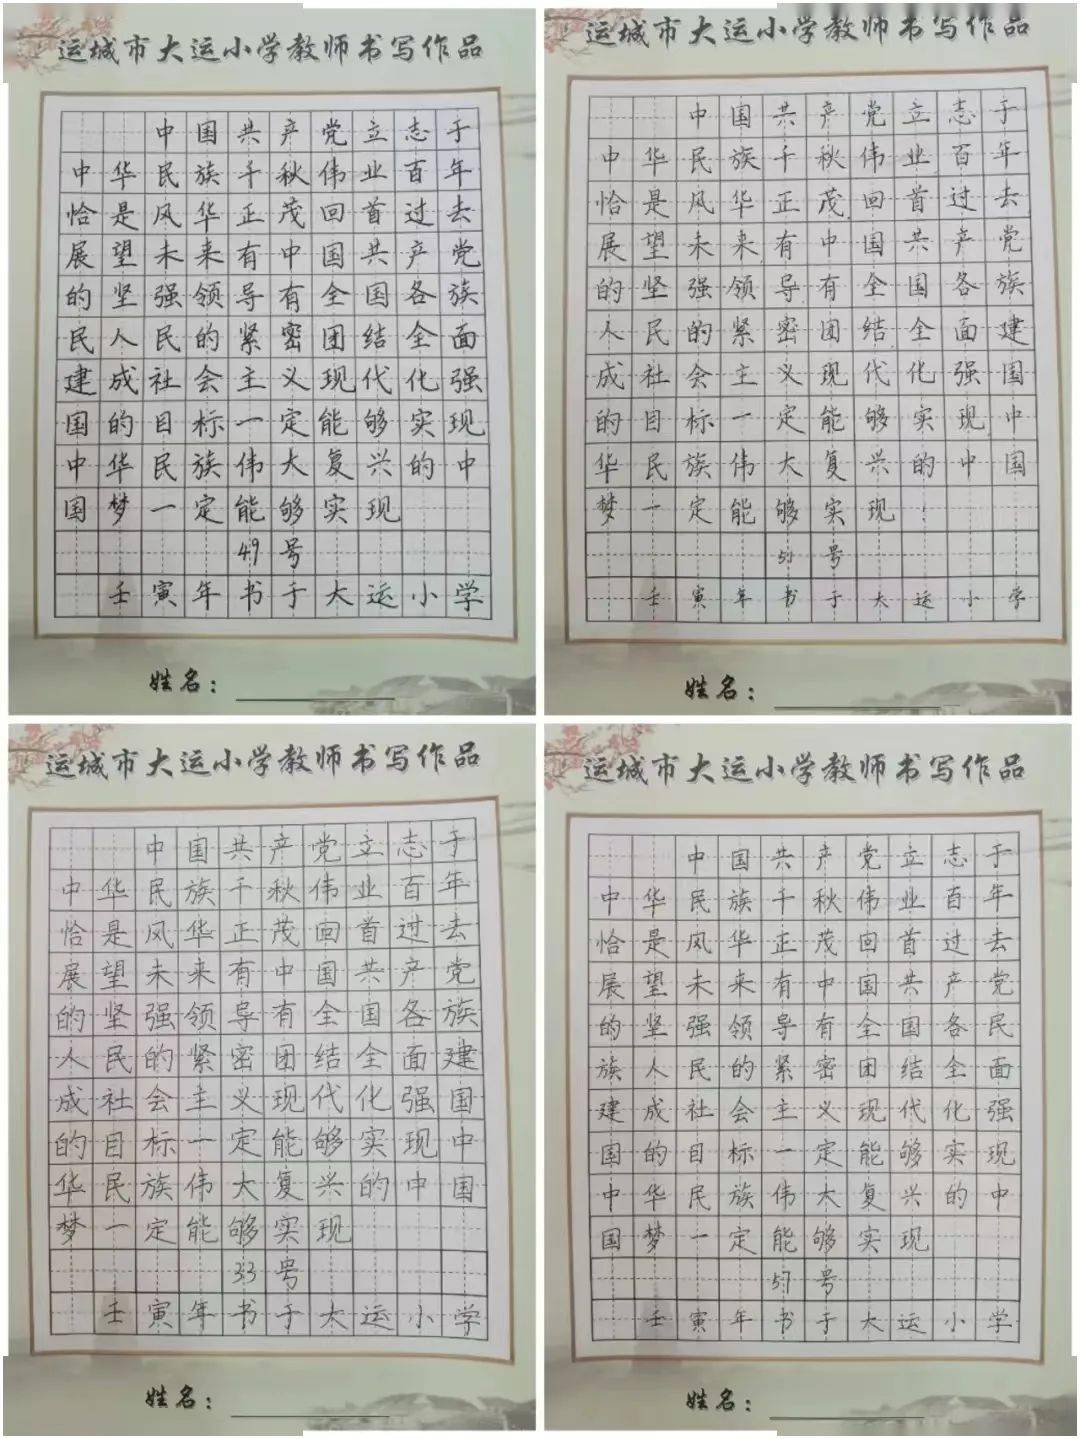 运城市大运小学教师书写作品
中国共产党立志于
中华民族千秋伟业百年
恰是风华正茂回首过去
展望未来有中国共产党
的坚强领导有全国各族
民人民的紧密团结全面
建成社会主义现代化强
国的目标一定能够实现
中华民族伟大复兴的中
国梦一定能够实现
49号
壬寅年书于大运小学
姓名：
运城市大运小学教师书写作品
中国共产党立志于
中华民族千秋伟业百年
恰是风华正茂回首过去
展望未来有中国共产党
的坚强领导有全国各族
人民的紧密团结全面建
成社会主义现代化强国
的目标一定能够实现中
华民族伟大复兴的中国
梦一定能够实现
号
壬寅年书于大运小学
姓名：
运城市大运小学教师书写作品
中国共产党立志于
中华民族千秋伟业百年
恰是风华正茂回首过去
展望未来有中国共产党
的坚强领导有全国各族
人民的紧密团结全面建
成社会主义现代化强国
的目标一定能够实现中
华民族伟大复兴的中国
梦一定能够实现
33号
壬寅年书于大运小学
姓名：
运城市大运小学教师书写作品
中国共产党立志于
中华民族千秋伟业百年
恰是风华正茂回首过去
展望未来有中国共产党
的坚强领导有全国各民
族人民的紧密团结全面
建成社会主义现代化强
国的目标一定能够实现
中华民族伟大复兴的中
国梦一定能够实现
57号
壬寅年书于大运小学
姓名：